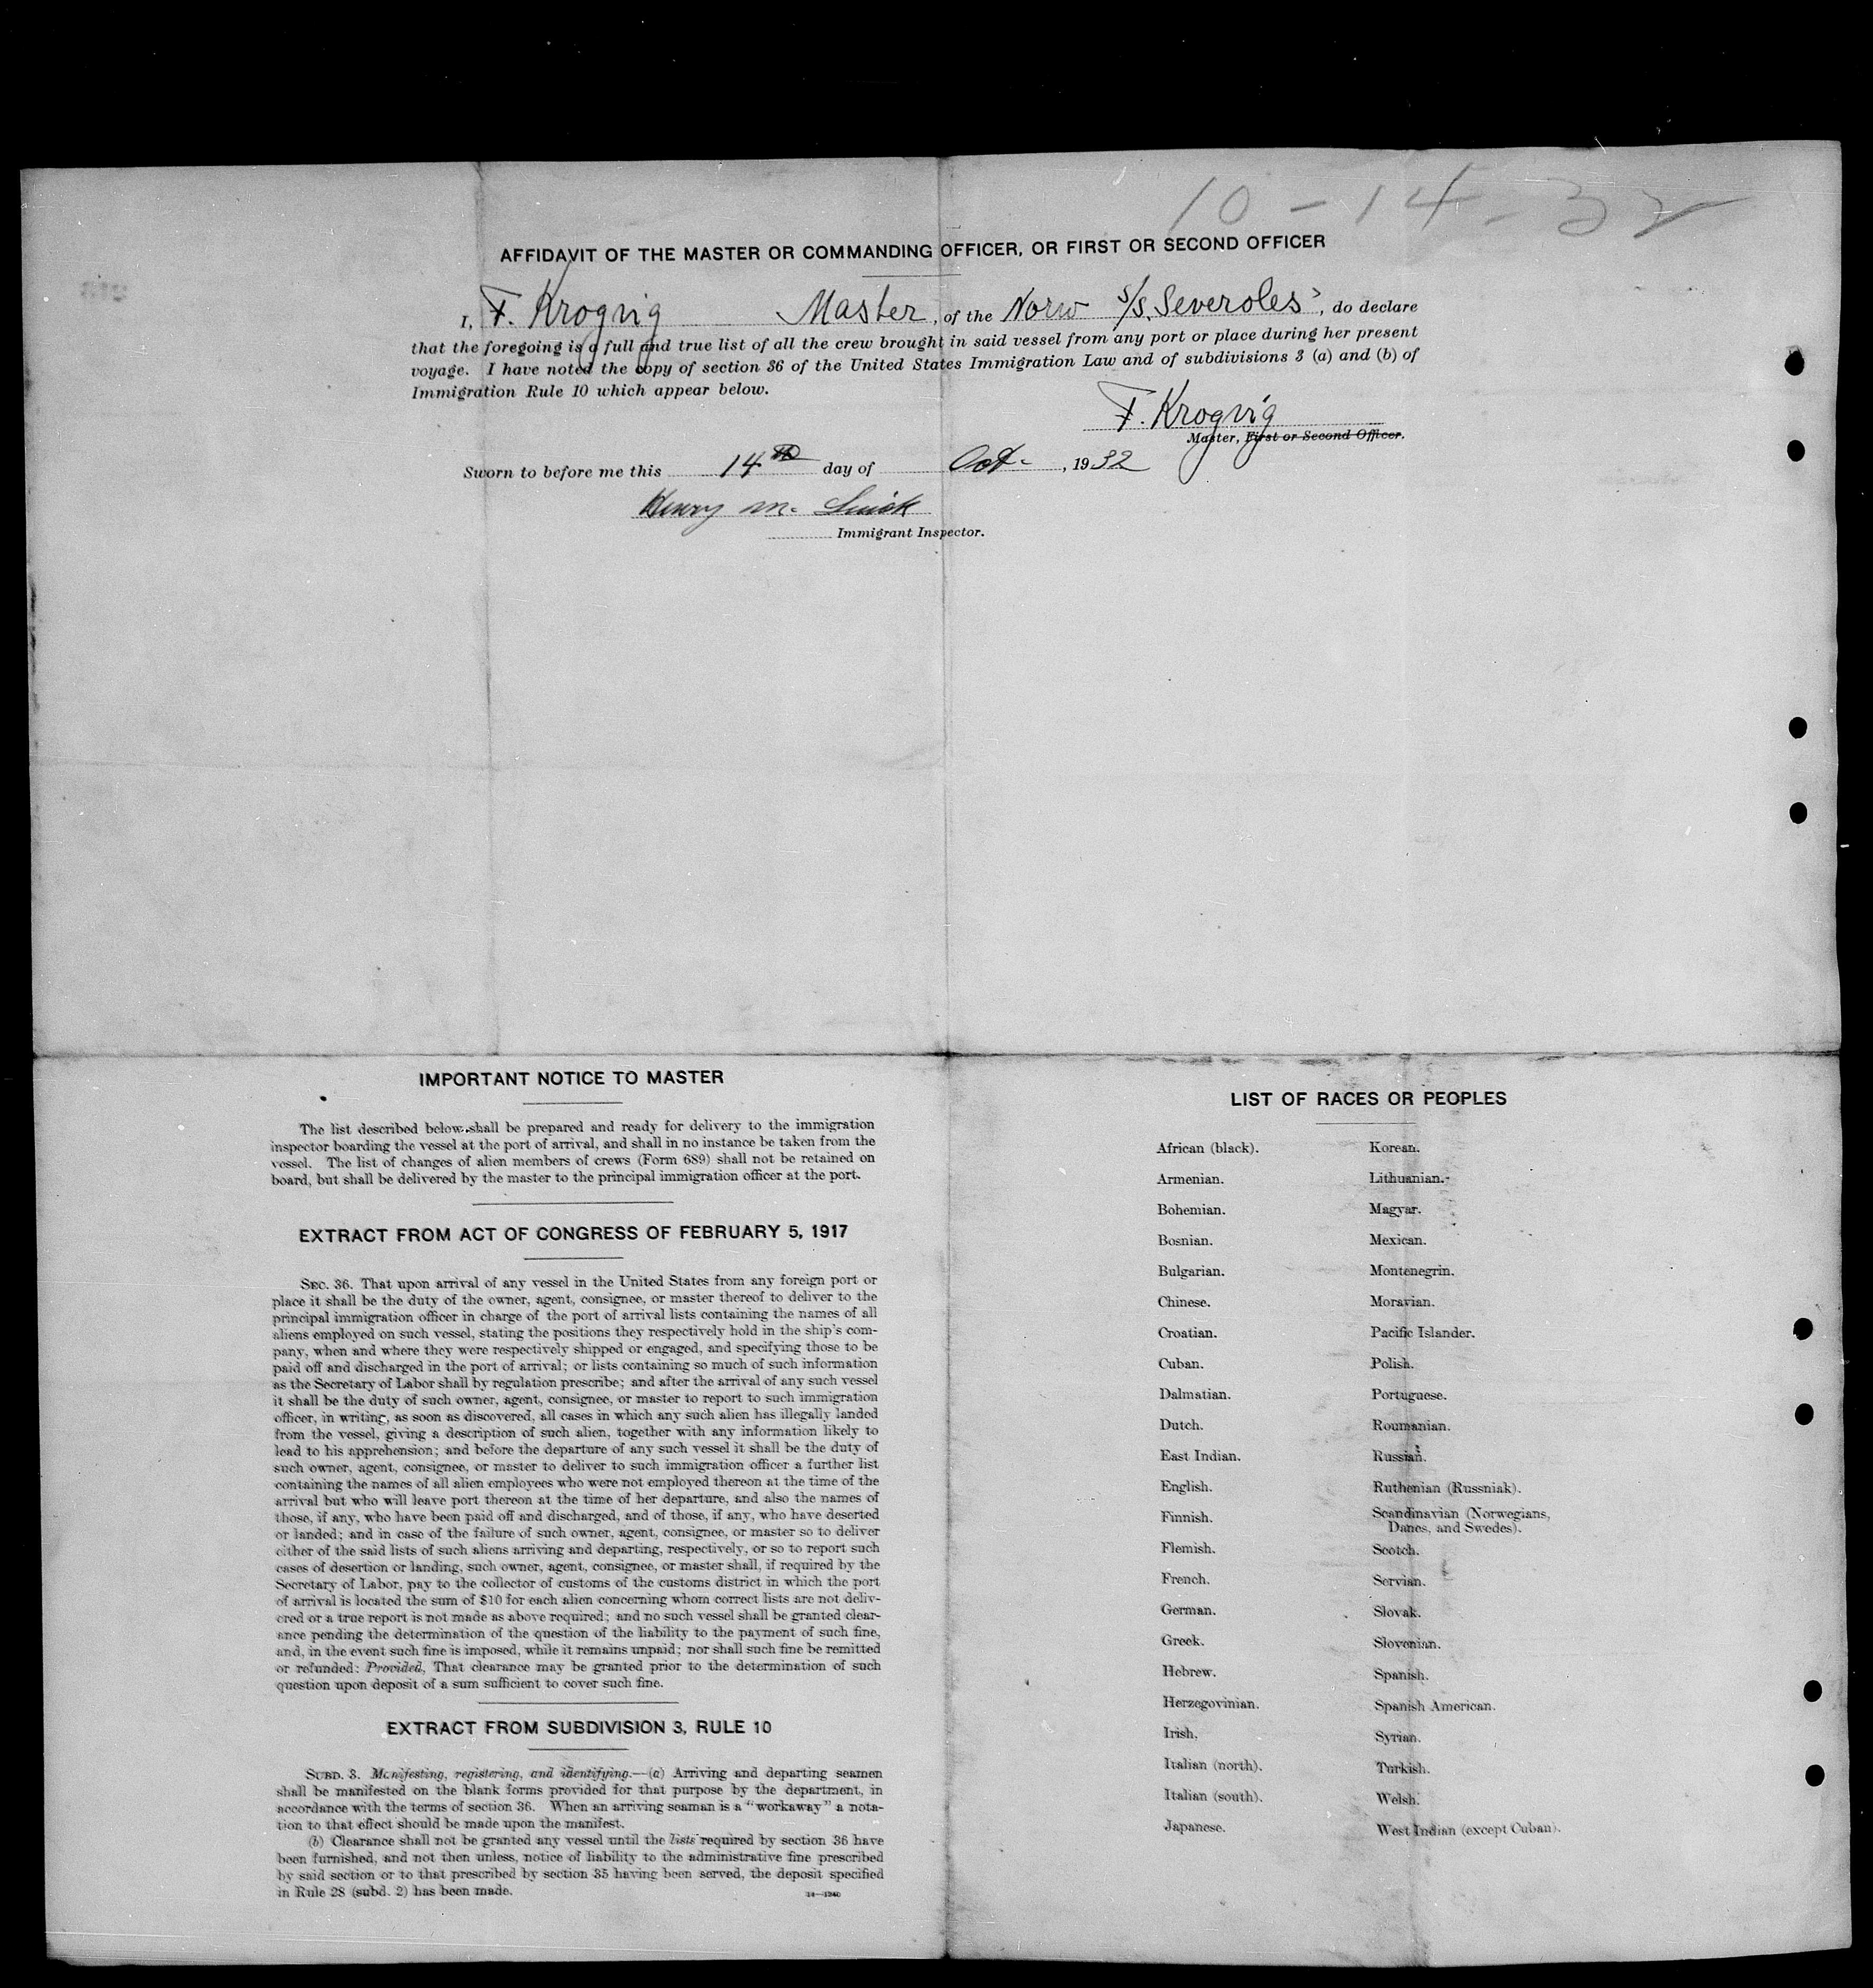 10-14-32
AFFIDAVIT OF THE MASTER OR COMMANDING OFFICER, OR FIRST OR SECOND OFFICER
I, F. Krogvig Master, of the Norw S/S. Severoles, do declare
that the foregoing is a full and true list of all the crew brought in said vessel from any port or place during her present
voyage. I have noted the copy of section 36 of the United States Immigration Law and of subdivisions 3 (a) and (b) of
Immigration Rule 10 which appear below.
F. Krogvig
Master, First or Second Officer.
Sworn to before me this 14th day of Oct. , 1932
Henry M.
Immigrant Inspector.
IMPORTANT NOTICE TO MASTER
The list described below shall be prepared and ready for delivery to the immigration
inspector boarding the vessel at the port of arrival, and shall in no instance be taken from the
vessel. The list of changes of alien members of crews (Form 689) shall not be retained on
board, but shall be delivered by the master to the principal immigration officer at the port.
EXTRACT FROM ACT OF CONGRESS OF FEBRUARY 5, 1917
SEC. 36. That upon arrival of any vessel in the United States from any foreign port or
place it shall be the duty of the owner, agent, consignee, or master thereof to deliver to the
principal immigration officer in charge of the port of arrival lists containing the names of all
aliens employed on such vessel, stating the positions they respectively hold in the ship's com-
pany, when and where they were respectively shipped or engaged, and specifying those to be
paid off and discharged in the port of arrival; or lists containing so much of such information
as the Secretary of Labor shall by regulation prescribe; and after the arrival of any such vessel
it shall be the duty of such owner, agent, consignee, or master to report to such immigration
officer, in writing, as soon as discovered, all cases in which any such alien has illegally landed
from the vessel, giving a description of such alien, together with any information likely to
lead to his apprehension; and before the departure of any such vessel it shall be the duty of
such owner, agent, consignee, or master to deliver to such immigration officer a further list
containing the names of all alien employees who were not employed thereon at the time of the
arrival but who will leave port thereon at the time of her departure, and also the names of
those, if any, who have been paid off and discharged, and of those, if any, who have deserted
or landed; and in case of the failure of such owner, agent, consignee, or master so to deliver
either of the said lists of such aliens arriving and departing, respectively, or so to report such
cases of desertion or landing, such owner, agent, consignee, or master shall, if required by the
Secretary of Labor, pay to the collector of customs of the customs district in which the port
of arrival is located the sum of $10 for each alien concerning whom correct lists are not deliv-
ered or a true report is not made as above required; and no such vessel shall be granted clear-
ance pending the determination of the question of the liability to the payment of such fine,
and, in the event such fine is imposed, while it remains unpaid; nor shall such fine be remitted
or refunded: Provided, That clearance may be granted prior to the determination of such
question upon deposit of a sum sufficient to cover such fine.
EXTRACT FROM SUBDIVISION 3, RULE 10
SUBD. 3. Manifesting, registering, and identifying.—(a) Arriving and departing seamen
shall be manifested on the blank forms provided for that purpose by the department, in
accordance with the terms of section 36. When an arriving seaman is a "workaway" a nota-
tion to that effect should be made upon the manifest.
(b) Clearance shall not be granted any vessel until the lists required by section 36 have
been furnished, and not then unless, notice of liability to the administrative fine prescribed
by said section or to that prescribed by section 35 having been served, the deposit specified
in Rule 28 (subd. 2) has been made.
14—1240
LIST OF RACES OR PEOPLES
African (black).
Armenian.
Bohemian.
Bosnian.
Bulgarian.
Chinese.
Croatian.
Cuban.
Dalmatian.
Dutch.
East Indian.
English.
Finnish.
Flemish.
French.
German.
Greek.
Hebrew.
Herzegovinian.
Irish.
Italian (north).
Italian (south).
Japanese.
Korean.
Lithuanian.
Magyar.
Mexican.
Montenegrin.
Moravian.
Pacific Islander.
Polish.
Portuguese.
Roumanian.
Russian.
Ruthenian (Russniak).
Scandinavian (Norwegians,
Danes, and Swedes).
Scotch.
Servian.
Slovak.
Slovenian.
Spanish.
Spanish American.
Syrian.
Turkish.
Welsh.
West Indian (except Cuban).